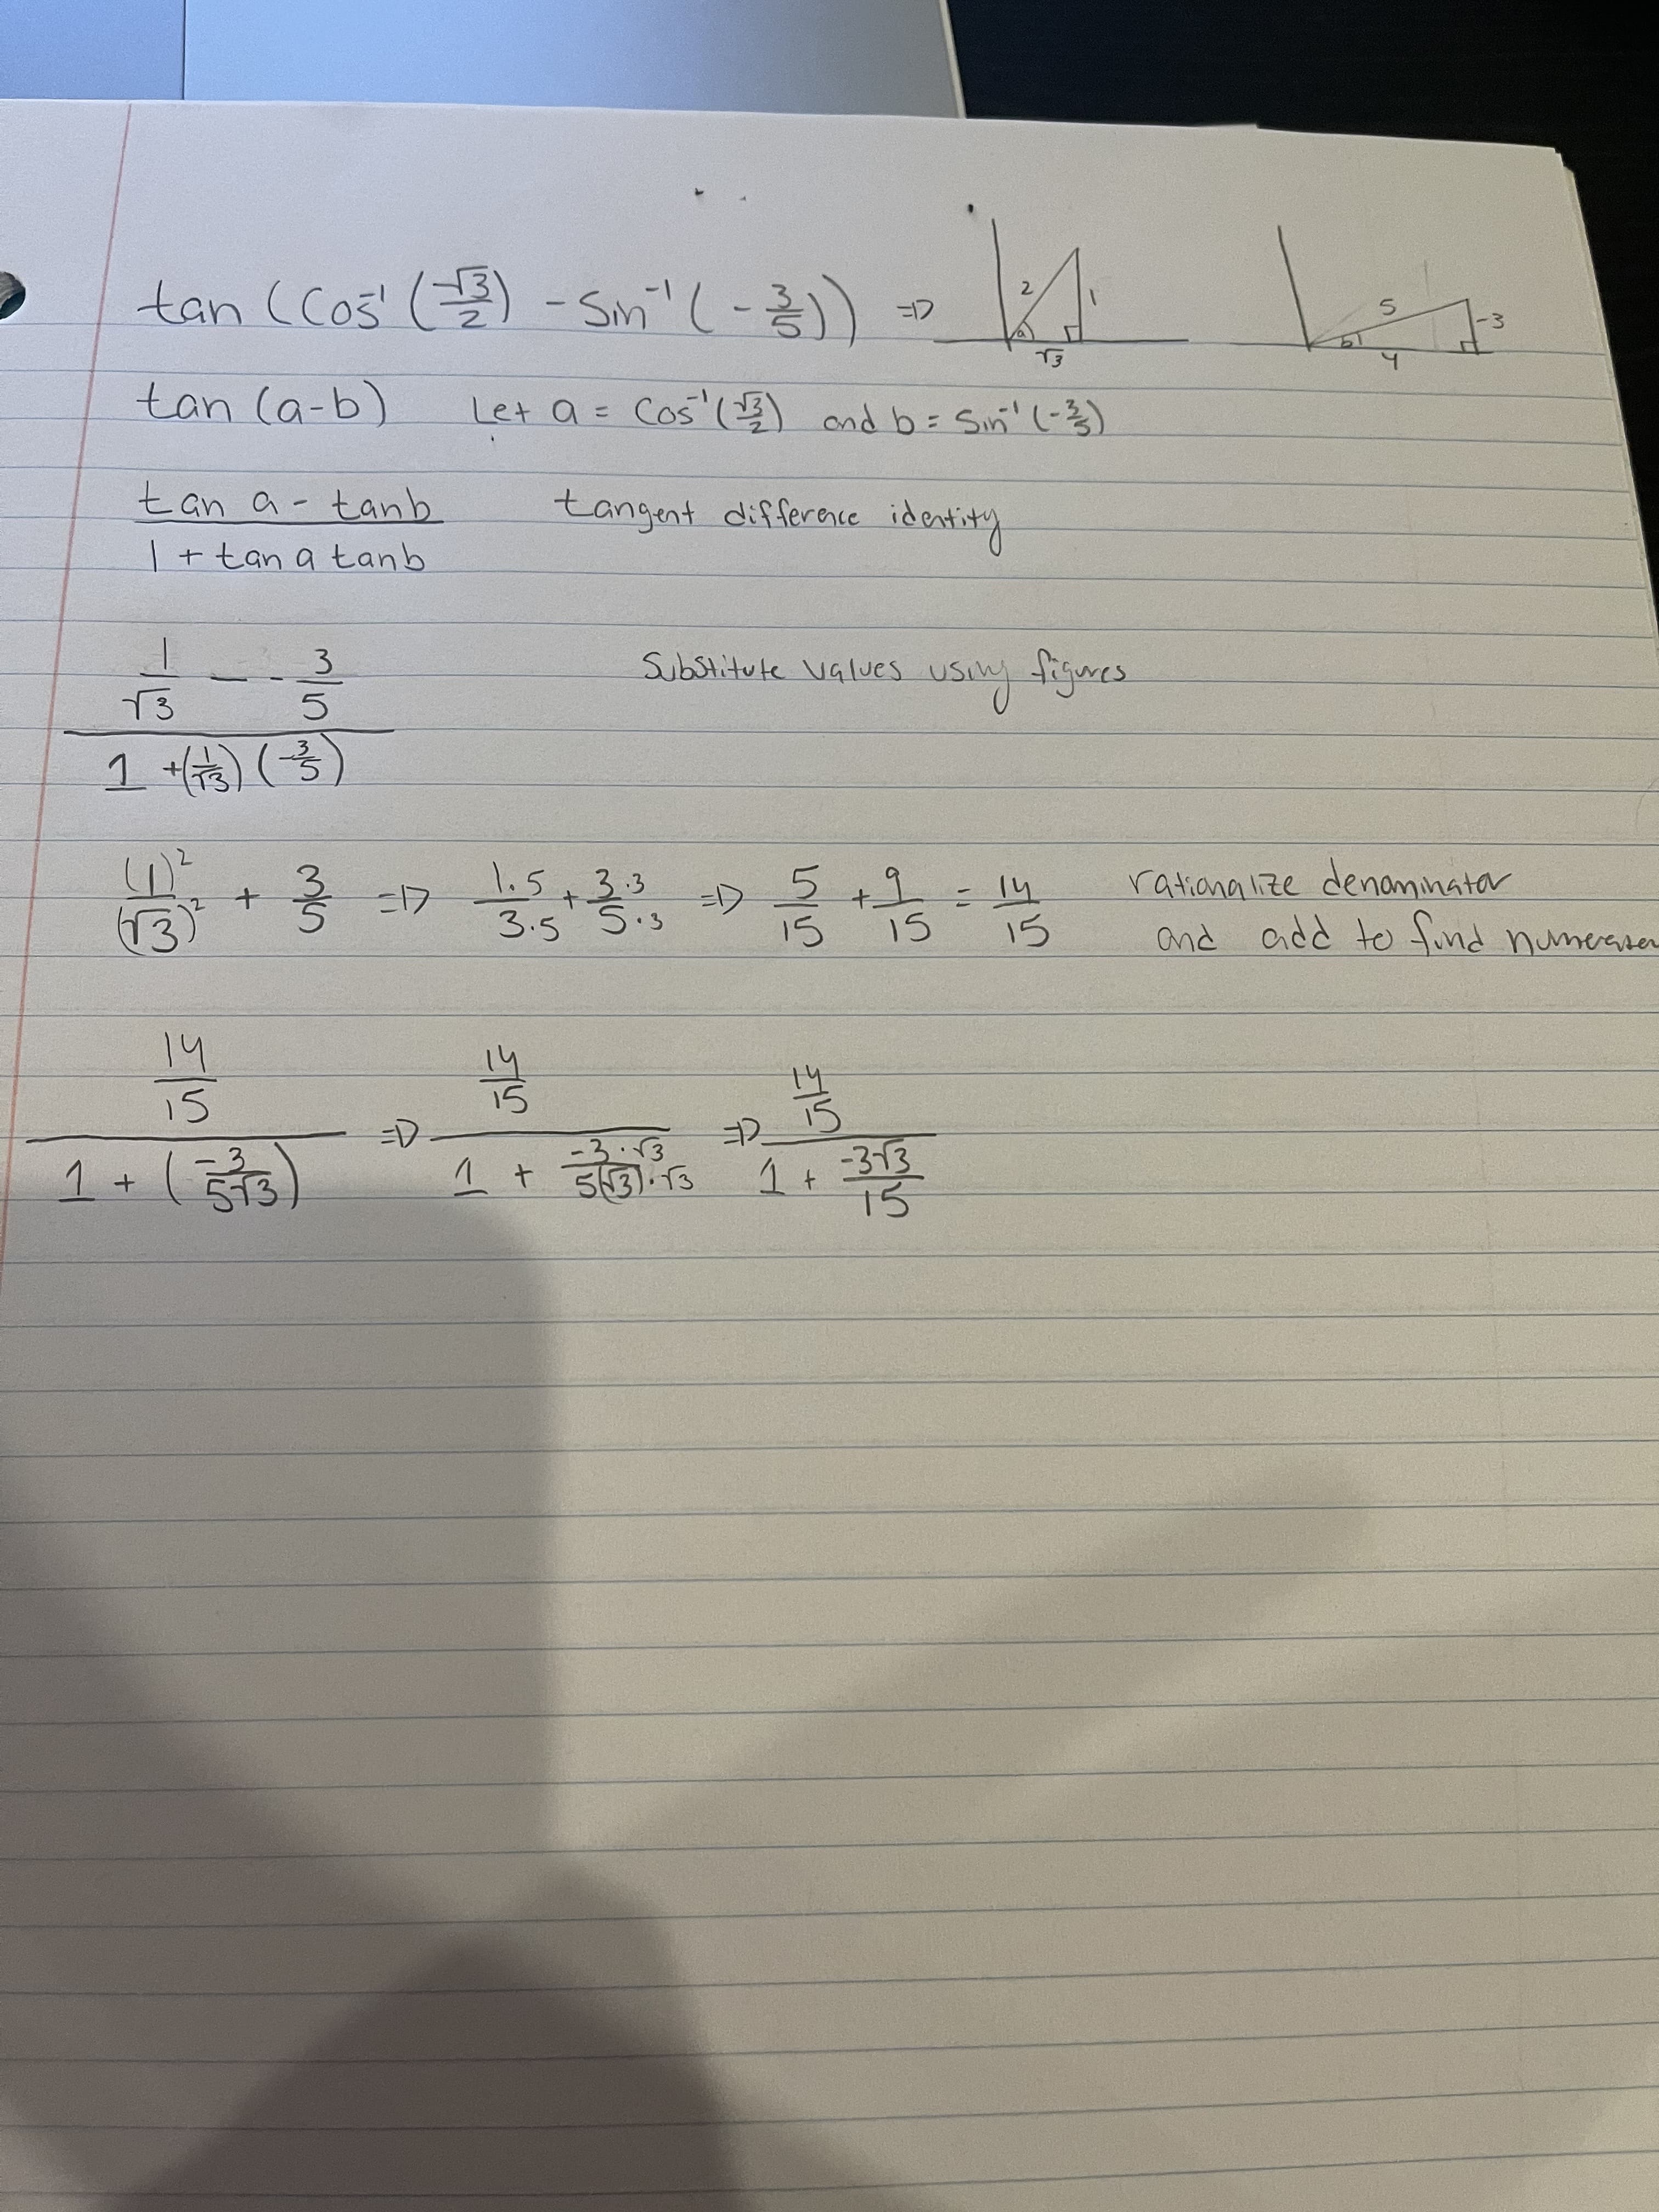 tan (cos⁻¹ (√3/2) - sin⁻¹ (- 3/5)) ⇒ 2 a 1 √3 5 b -3 4
tan (a-b) Let a = cos⁻¹(√3/2) and b = sin⁻¹ (-3/5)
(tan a - tan b)/(1 + tan a tan b) tangent difference identity
(1/√3 - -3/5)/(1 + (1/√3) (-3/5)) Substitute values using figures
(1)²/(√3)² + 3/5 ⇒ 1·5/3·5 + 3·3/5·3 ⇒ 5/15 + 9/15 = 14/15 rationalize denominator
and add to find
(14/15)/(1 + (-3/5√3)) ⇒ (14/15)/(1 + -3·√3/5(√3)·√3) ⇒ (14/15)/(1 + -3√3/15)